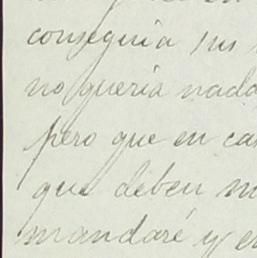 conseguia sus
no queria nada
pero que en
que deben
mandaré y